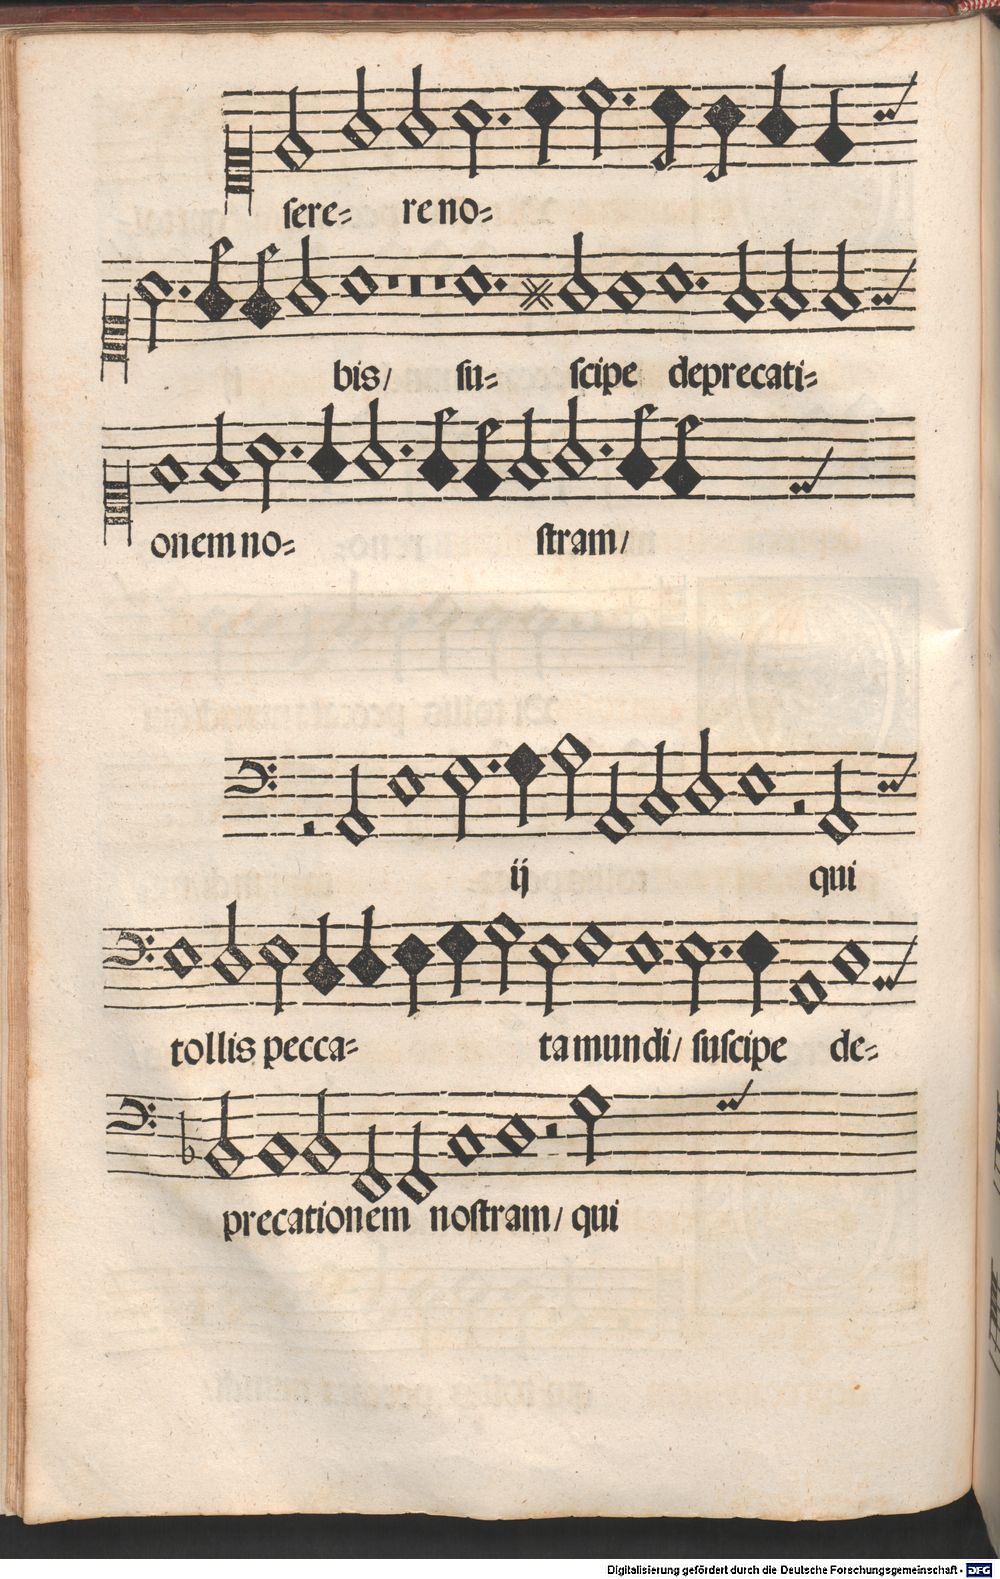 sere= re no=
bis/ su= scipe deprecati=
onem no= stram/
ij qui
tollis pecca= ta mundi/ suscipe de=
precationem nostram/ qui
Digitalisierung gefördert durch die Deutsche Forschungsgemeinschaft - DFG